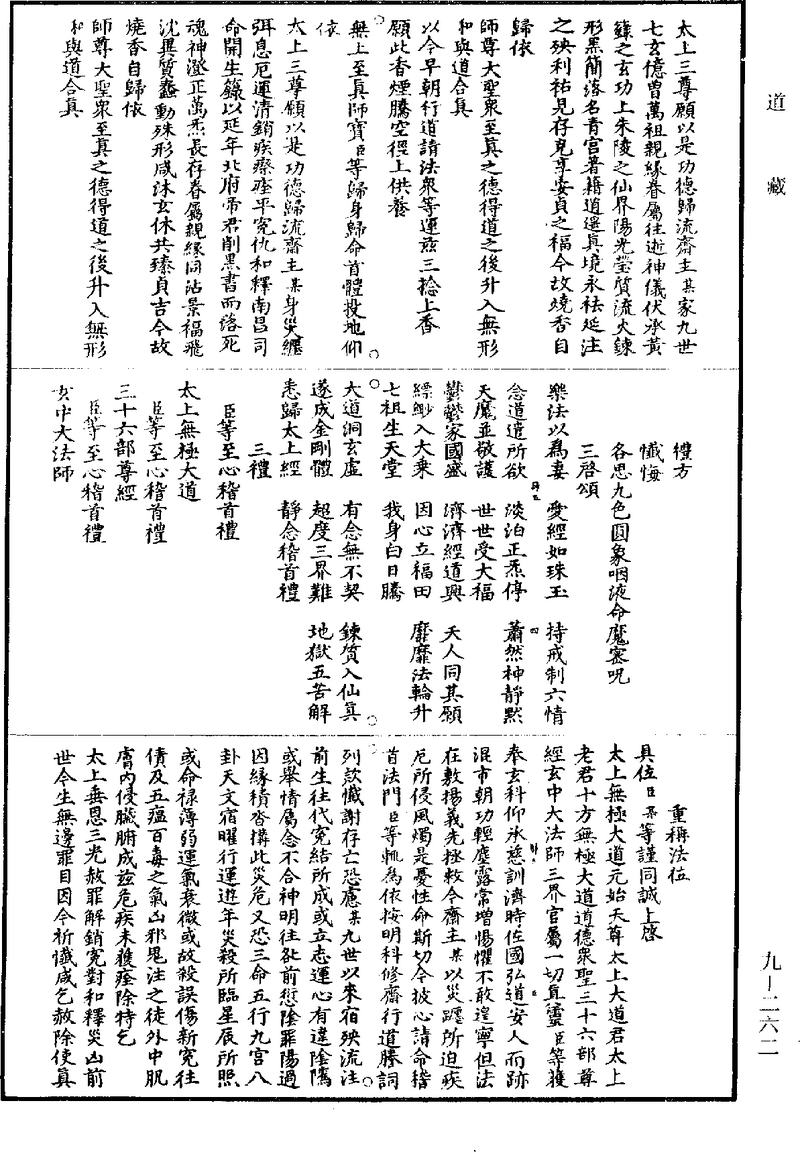 道藏
太上三尊願以是功德歸流齋主某家九世
七玄億曾萬祖親緣眷屬往逝神儀伏承黃
籙之玄功上朱陵之仙界陽光瑩質流火鍊
形黑簡落名青宮著籍逍遙真境永袪延注
之殃利祐見存克享安貞之福今故燒香自
歸依
師尊大聖衆至真之德得道之後升入無形
和與道合真
以今早朝行道請法衆等運茲三捻上香
願此香煙騰空徑上供養
無上至真師寶臣等歸身歸命首體投地仰
依
太上三尊願以是功德歸流齋主某身災纏
弭息厄運清銷疾瘵痊平冤仇和釋南昌司
命開生籙以延年北府帝君削黑書而落死
魂神澄正萬炁長存眷屬親緣同沾景福飛
沈異質蠢動殊形咸沐玄休共臻貞吉今故
燒香自歸依
師尊大聖衆至真之德得道之後升入無形
和與道合真
禮方
懺悔
各思九色圓象咽液命魔密呪
三啓頌
樂法以爲妻 愛經如珠玉 持戒制六情
念道遣所欲 淡泊正炁停 蕭然神靜默
天魔並敬護 世世受大福
鬱鬱家國盛 濟濟經道興 天人同其願
縹緲入大乘 因心立福田 靡靡法輪升
七祖生天堂 我身白日騰
大道洞玄虛 有念無不契 鍊質入仙真
遂成金剛體 超度三界難 地獄五苦解
悉歸太上經 靜念稽首禮
三禮
臣等至心稽首禮
太上無極大道
臣等至心稽首禮
三十六部尊經
臣等至心稽首禮
玄中大法師
重稱法位
具位臣某等謹同誠上啓
太上無極大道元始天尊太上大道君太上
老君十方無極大道道德衆聖三十六部尊
經玄中大法師三界官屬一切真靈臣等獲
奉玄科仰承慈訓濟時佐國弘道安人而跡
混市朝功輕塵露常增惕懼不敢遑寧但法
在敷揚義先拯救今齋主某以災躔所迫疾
厄所侵風燭是憂性命斯切今披心請命稽
首法門臣等輒為依按明科修齋行道謄詞
列欵懺謝存亡恐慮某九世以來宿殃流注
前生往代冤結所成或立志運心有違陰騭
或舉情屬念不合神明往咎前愆陰罪陽過
因緣積沓搆此災危又恐三命五行九宮八
卦天文宿曜行運遊年災殺所臨星辰所照
或命祿薄弱運氣衰微或故殺誤傷新冤往
債及五瘟百毒之氣凶邪鬼注之徒外中肌
膚內侵臟腑成茲危疾未獲痊除特乞
太上垂恩三光赦罪解銷冤對和釋災凶前
世今生無邊罪目因今祈懺咸乞赦除使真
九-二六二